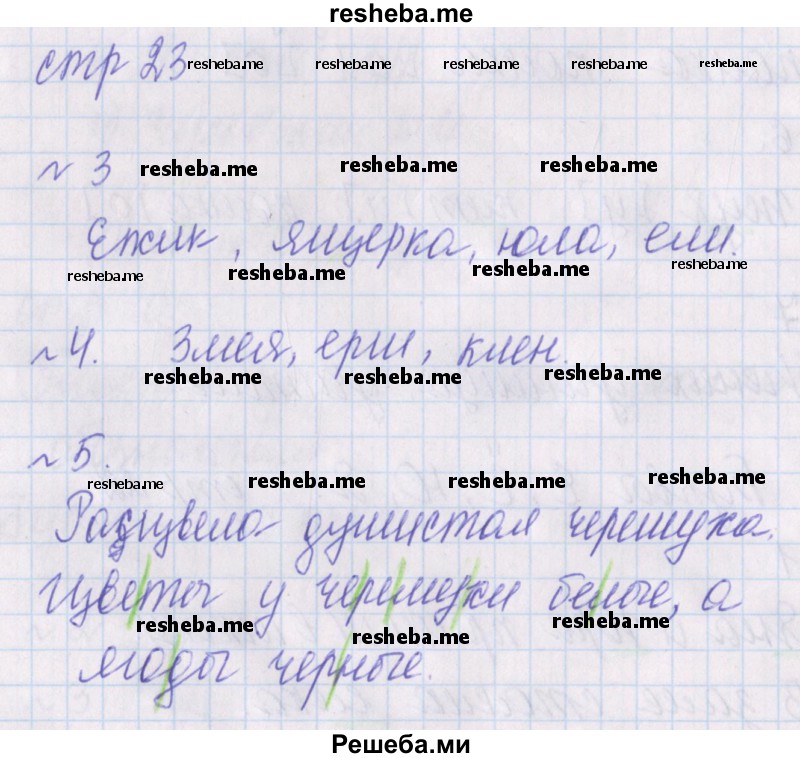 resheba.me
стр 23 resheba.me resheba.me resheba.me resheba.me resheba.me
№ 3 resheba.me resheba.me resheba.me
Ежик, ящерка, юла, ели.
resheba.me resheba.me resheba.me resheba.me
№ 4. Змея, ерш, клен.
resheba.me resheba.me resheba.me
№ 5.
resheba.me resheba.me resheba.me resheba.me
Расцвела душистая черемуха.
Цветы у черемухи белые, а
resheba.me resheba.me resheba.me
ягоды черные.
Решеба.ми